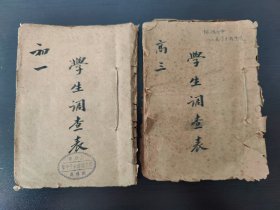 初一
學生调查表
高三
學生调查表